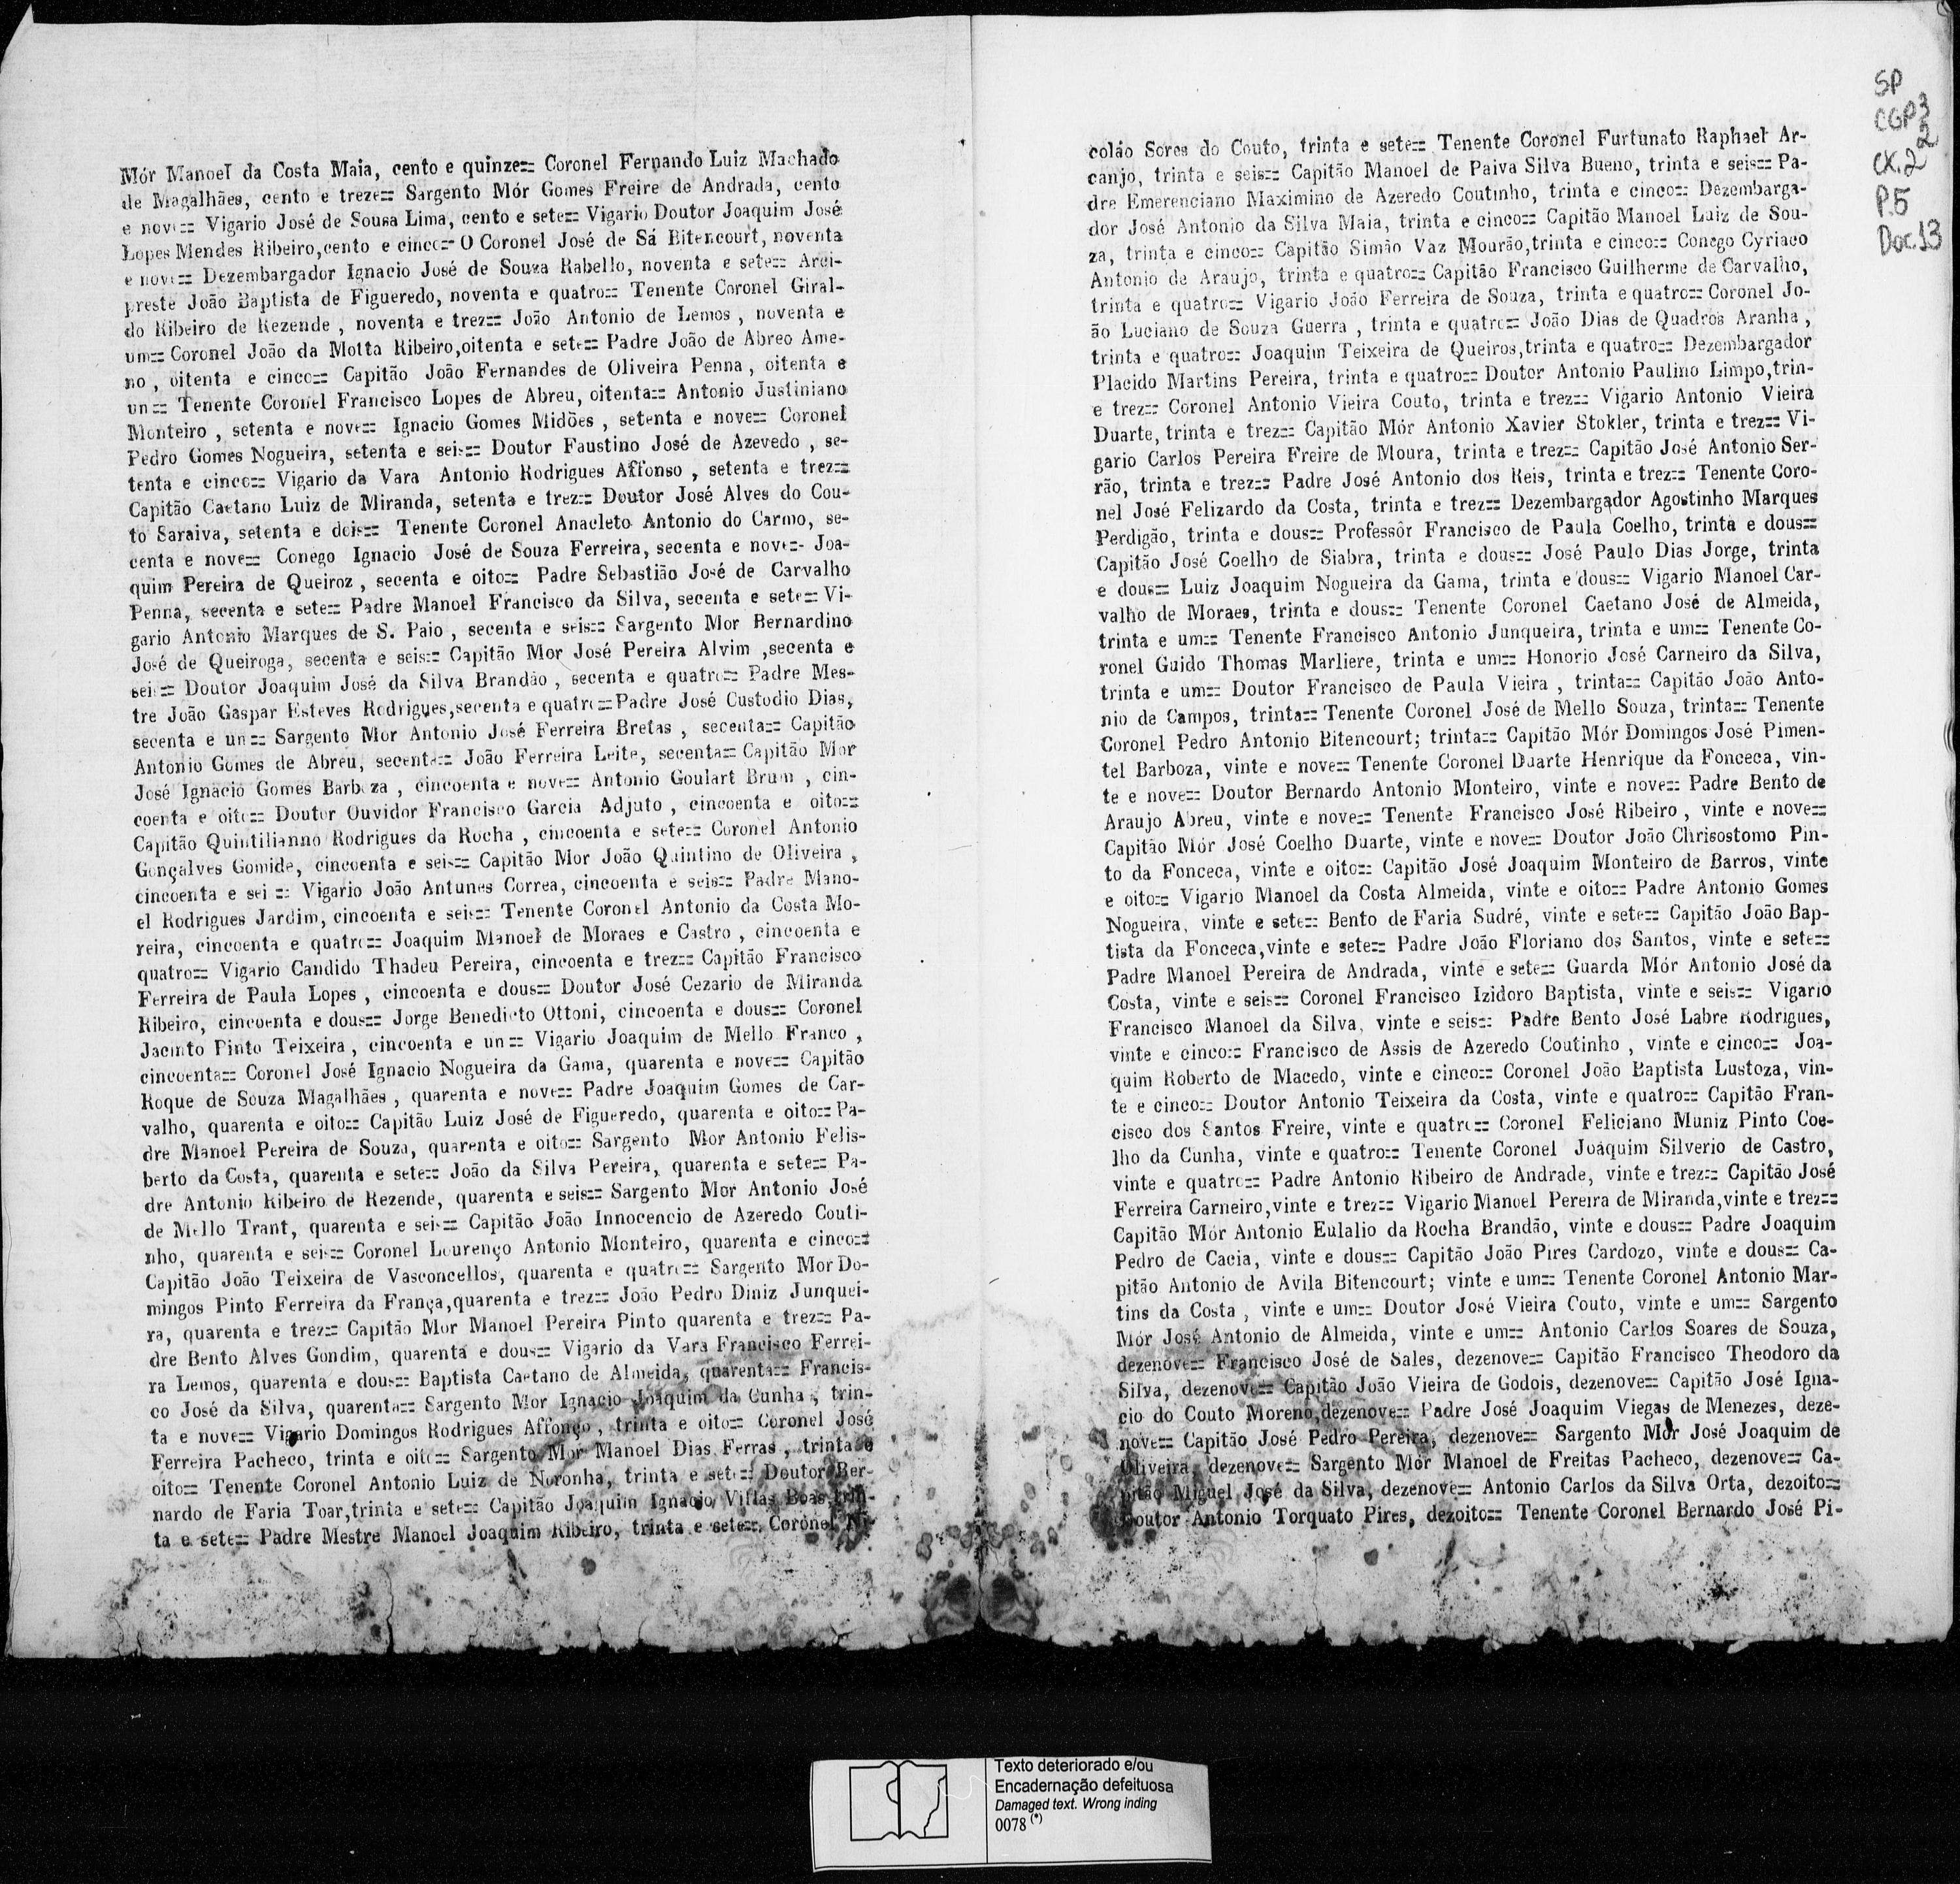 Mór Manoel da Costa Maia, cento e quinze== Coronel Fernando Luiz Machado
de Magalhães, cento e treze== Sargento Mór Gomes Freire de Andrada, cento
e nove== Vigario José de Sousa Lima, cento e sete== Vigario Doutor Joaquim José
Lopes Mendes Ribeiro,cento e cinco== O Coronel José de Sá Bitencourt, noventa
e nove== Dezembargador Ignacio José de Souza Rabello, noventa e sete== Arci-
preste João Baptista de Figueredo, noventa e quatro== Tenente Coronel Giral-
do Ribeiro de Rezende , noventa e trez== João Antonio de Lemos , noventa e
um== Coronel João da Motta Ribeiro,oitenta e sete== Padre João de Abreo Ame-
no , oitenta e cinco== Capitão João Fernandes de Oliveira Penna , oitenta e
un== Tenente Coronel Francisco Lopes de Abreu, oitenta== Antonio Justiniano
Monteiro , setenta e nove== Ignacio Gomes Midões , setenta e nove== Coronel
Pedro Gomes Nogueira, setenta e seis== Doutor Faustino José de Azevedo , se-
tenta e cinco== Vigario da Vara Antonio Rodrigues Affonso , setenta e trez==
Capitão Caetano Luiz de Miranda, setenta e trez== Doutor José Alves do Cou-
to Saraiva, setenta e dois== Tenente Coronel Anacleto Antonio do Carmo, se-
centa e nove== Conego Ignacio José de Souza Ferreira, secenta e nove== Joa-
quim Pereira de Queiroz , secenta e oito== Padre Sebastião José de Carvalho
Penna, secenta e sete== Padre Manoel Francisco da Silva, secenta e sete== Vi-
gario Antonio Marques de S. Paio , secenta e seis== Sargento Mor Bernardino
José de Queiroga, secenta e seis== Capitão Mor José Pereira Alvim ,secenta e
seis== Doutor Joaquim José da Silva Brandão , secenta e quatro== Padre Mes-
tre João Gaspar Esteves Rodrigues,secenta e quatro==Padre José Custodio Dias,
secenta e un== Sargento Mor Antonio José Ferreira Bretas , secenta== Capitão
Antonio Gomes de Abreu, secenta== João Ferreira Leite, secenta== Capitão Mor
José Ignacio Gomes Barboza , cincoenta e nove== Antonio Goulart Brum , cin-
coenta e oito== Doutor Ouvidor Francisco Garcia Adjuto , cincoenta e oito==
Capitão Quintilianno Rodrigues da Rocha , cincoenta e sete== Coronel Antonio
Gonçalves Gomide, cincoenta e seis== Capitão Mor João Quintino de Oliveira ,
cincoenta e sei == Vigario João Antunes Correa, cincoenta e seis== Padre Mano-
el Rodrigues Jardim, cincoenta e seis== Tenente Coronel Antonio da Costa Mo-
reira, cincoenta e quatro== Joaquim Manoel de Moraes e Castro , cincoenta e
quatro== Vigario Candido Thadeu Pereira, cincoenta e trez== Capitão Francisco
Ferreira de Paula Lopes , cincoenta e dous== Doutor José Cezario de Miranda
Ribeiro, cincoenta e dous== Jorge Benedicto Ottoni, cincoenta e dous== Coronel
Jacinto Pinto Teixeira , cincoenta e un== Vigario Joaquim de Mello Franco ,
cincoenta== Coronel José Ignacio Nogueira da Gama, quarenta e nove== Capitão
Roque de Souza Magalhães , quarenta e nove== Padre Joaquim Gomes de Car-
valho, quarenta e oito== Capitão Luiz José de Figueredo, quarenta e oito== Pa-
dre Manoel Pereira de Souza, quarenta e oito== Sargento Mor Antonio Felis-
berto da Costa, quarenta e sete== João da Silva Pereira, quarenta e sete== Pa-
dre Antonio Ribeiro de Rezende, quarenta e seis== Sargento Mor Antonio José
de Mello Trant, quarenta e seis== Capitão João Innocencio de Azeredo Couti-
nho, quarenta e seis== Coronel Lourenço Antonio Monteiro, quarenta e cinco==
Capitão João Teixeira de Vasconcellos, quarenta e quatro== Sargento Mor Do-
mingos Pinto Ferreira da França,quarenta e trez== João Pedro Diniz Junquei-
ra, quarenta e trez== Capitão Mor Manoel Pereira Pinto quarenta e trez== Pa-
dre Bento Alves Gondim, quarenta e dous== Vigario da Vara Francisco Ferrei-
ra Lemos, quarenta e dous== Baptista Caetano de Almeida, quarenta== Francis-
co José da Silva, quarenta== Sargento Mor Ignacio Joaquim da Cunha , trin-
ta e nove== Vigario Domingos Rodrigues Affonço , trinta e oito== Coronel José
Ferreira Pacheco, trinta e oito== Sargento Mor Manoel Dias Ferras , trinta e
oito== Tenente Coronel Antonio Luiz de Noronha, trinta e sete== Doutor Ber-
nardo de Faria Toar,trinta e sete== Capitão Joaquim Ignacio Villas Boas trin-
ta e sete== Padre Mestre Manoel Joaquim Ribeiro, trinta e sete== Coronel Ni-
colão Sores do Couto, trinta e sete== Tenente Coronel Furtunato Raphael Ar-
canjo, trinta e seis== Capitão Manoel de Paiva Silva Bueno, trinta e seis== Pa-
dre Emerenciano Maximino de Azeredo Coutinho, trinta e cinco== Dezembarga-
dor José Antonio da Silva Maia, trinta e cinco== Capitão Manoel Luiz de Sou-
za, trinta e cinco== Capitão Simão Vaz Mourão,trinta e cinco== Conego Cyriaco
Antonio de Araujo, trinta e quatro== Capitão Francisco Guilherme de Carvalho,
trinta e quatro== Vigario João Ferreira de Souza, trinta e quatro== Coronel Jo-
ão Luciano de Souza Guerra , trinta e quatro== João Dias de Quadros Aranha ,
trinta e quatro== Joaquim Teixeira de Queiros,trinta e quatro== Dezembargador
Placido Martins Pereira, trinta e quatro== Doutor Antonio Paulino Limpo,trin-
e trez== Coronel Antonio Vieira Couto, trinta e trez== Vigario Antonio Vieira
Duarte, trinta e trez== Capitão Mór Antonio Xavier Stokler, trinta e trez== Vi-
gario Carlos Pereira Freire de Moura, trinta e trez== Capitão José Antonio Ser-
rão, trinta e trez== Padre José Antonio dos Reis, trinta e trez== Tenente Coro-
nel José Felizardo da Costa, trinta e trez== Dezembargador Agostinho Marques
Perdigão, trinta e dous== Professôr Francisco de Paula Coelho, trinta e dous==
Capitão José Coelho de Siabra, trinta e dous== José Paulo Dias Jorge, trinta
e dous== Luiz Joaquim Nogueira da Gama, trinta e dous== Vigario Manoel Car-
valho de Moraes, trinta e dous== Tenente Coronel Caetano José de Almeida,
trinta e um== Tenente Francisco Antonio Junqueira, trinta e um== Tenente Co-
ronel Guido Thomas Marliere, trinta e um== Honorio José Carneiro da Silva,
trinta e um== Doutor Francisco de Paula Vieira , trinta== Capitão João Anto-
nio de Campos, trinta== Tenente Coronel José de Mello Souza, trinta== Tenente
Coronel Pedro Antonio Bitencourt; trinta== Capitão Mór Domingos José Pimen-
tel Barboza, vinte e nove== Tenente Coronel Duarte Henrique da Fonceca, vin-
te e nove== Doutor Bernardo Antonio Monteiro, vinte e nove== Padre Bento de
Araujo Abreu, vinte e nove== Tenente Francisco José Ribeiro , vinte e nove==
Capitão Mór José Coelho Duarte, vinte e nove== Doutor João Chrisostomo Pin-
to da Fonceca, vinte e oito== Capitão José Joaquim Monteiro de Barros, vinte
e oito== Vigario Manoel da Costa Almeida, vinte e oito== Padre Antonio Gomes
Nogueira, vinte e sete== Bento de Faria Sudré, vinte e sete== Capitão João Bap-
tista da Fonceca,vinte e sete== Padre João Floriano dos Santos, vinte e sete==
Padre Manoel Pereira de Andrada, vinte e sete== Guarda Mór Antonio José da
Costa, vinte e seis== Coronel Francisco Izidoro Baptista, vinte e seis== Vigario
Francisco Manoel da Silva, vinte e seis== Padre Bento José Labre Rodrigues,
vinte e cinco== Francisco de Assis de Azeredo Coutinho , vinte e cinco== Joa-
quim Roberto de Macedo, vinte e cinco== Coronel João Baptista Lustoza, vin-
te e cinco== Doutor Antonio Teixeira da Costa, vinte e quatro== Capitão Fran-
cisco dos Santos Freire, vinte e quatro== Coronel Feliciano Muniz Pinto Coe-
lho da Cunha, vinte e quatro== Tenente Coronel Joaquim Silverio de Castro,
vinte e quatro== Padre Antonio Ribeiro de Andrade, vinte e trez== Capitão José
Ferreira Carneiro,vinte e trez== Vigario Manoel Pereira de Miranda,vinte e trez==
Capitão Mór Antonio Eulalio da Rocha Brandão, vinte e dous== Padre Joaquim
Pedro de Cacia, vinte e dous== Capitão João Pires Cardozo, vinte e dous== Ca-
pitão Antonio de Avila Bitencourt; vinte e um== Tenente Coronel Antonio Mar-
tins da Costa , vinte e um== Doutor José Vieira Couto, vinte e um== Sargento
Mór José Antonio de Almeida, vinte e um== Antonio Carlos Soares de Souza,
dezenove== Francisco José de Sales, dezenove== Capitão Francisco Theodoro da
Silva, dezenove== Capitão João Vieira de Godois, dezenove== Capitão José Igna-
cio do Couto Moreno,dezenove== Padre José Joaquim Viegas de Menezes, deze-
nove== Capitão José Pedro Pereira, dezenove== Sargento Mór José Joaquim de
Oliveira, dezenove== Sargento Mór Manoel de Freitas Pacheco, dezenove== Ca-
pitão Miguel José da Silva, dezenove== Antonio Carlos da Silva Orta, dezoito==
Doutor Antonio Torquato Pires, dezoito== Tenente Coronel Bernardo José Pi-
SP
CGP3
2
CX.2
P.5
Doc.13
Texto deteriorado e/ou
Encadernação defeituosa
Damaged text. Wrong inding
0078 (*)